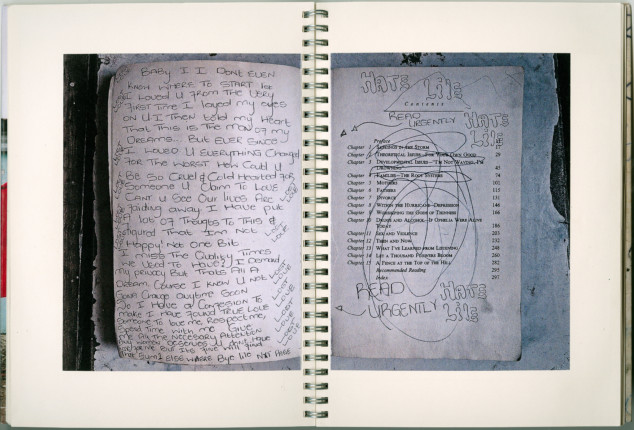 BABY I I DONT EVEN
KNOW WHERE TO START
I LOVED U FROM THE VERY
FIRST TIME I LAYED MY EYES
ON U I THEN told my HEART
THAT THIS IS THE MAN OF MY
DREAMS... BUT EVER SINCE
I LOVED U EVERYTHING CHANGED
FOR THE WORST HOW COULD U
BE SO CRUEL & COLD HEARTED FOR
SOMEONE U CLAIM TO LOVE
CANT U SEE OUR LIVES ARE
fading away I HAVE PUT
A lot OF THOUGHTS TO THIS &
figured THAT I'm NOT
Happy! NOT ONE Bit
I miss THE QUALITY TIMES
WE USED TO HAVE! I
my privacy BUT THATS All A
DREAM COURSE I KNOW U NOT
GONNA CHANGE ANYTIME SOON
SO I HAVE A CONFESSION TO
MAKE I HAVE FOUND TRUE LOVE
SOMEONE TO love me RESPECT me,
SPEND TIME WITH ME GIVE
ME THE NECESSARY ATTENTION
ANY WOMAN DESERVES U
BYE
LOST
LOVE
HATE LiFE
Contents
READ
URGENTLY
HATE
LiFE
Preface
Chapter 1 SAPLINGS IN THE STORM 17
Chapter 2 THEORETICAL ISSUES—FOR YOUR OWN GOOD 29
Chapter 3 DEVELOPMENTAL ISSUES—"I'M NOT WAVING, I'M
DROWNING" 45
Chapter 4 FAMILIES—THE ROOT SYSTEMS 74
Chapter 5 MOTHERS 101
Chapter 6 FATHERS 115
Chapter 7 DIVORCE 131
Chapter 8 WITHIN THE HURRICANE—DEPRESSION 146
Chapter 9 WORSHIPING THE GODS OF THINNESS 166
Chapter 10 DRUGS AND ALCOHOL—IF OPHELIA WERE ALIVE
TODAY 186
Chapter 11 SEX AND VIOLENCE 203
Chapter 12 THEN AND NOW 232
Chapter 13 WHAT I'VE LEARNED FROM LISTENING 248
Chapter 14 LET A THOUSAND FLOWERS BLOOM 260
Chapter 15 A FENCE AT THE TOP OF THE HILL 282
Recommended Reading 295
Index 297
READ
URGENTLY
HATE
LiFE